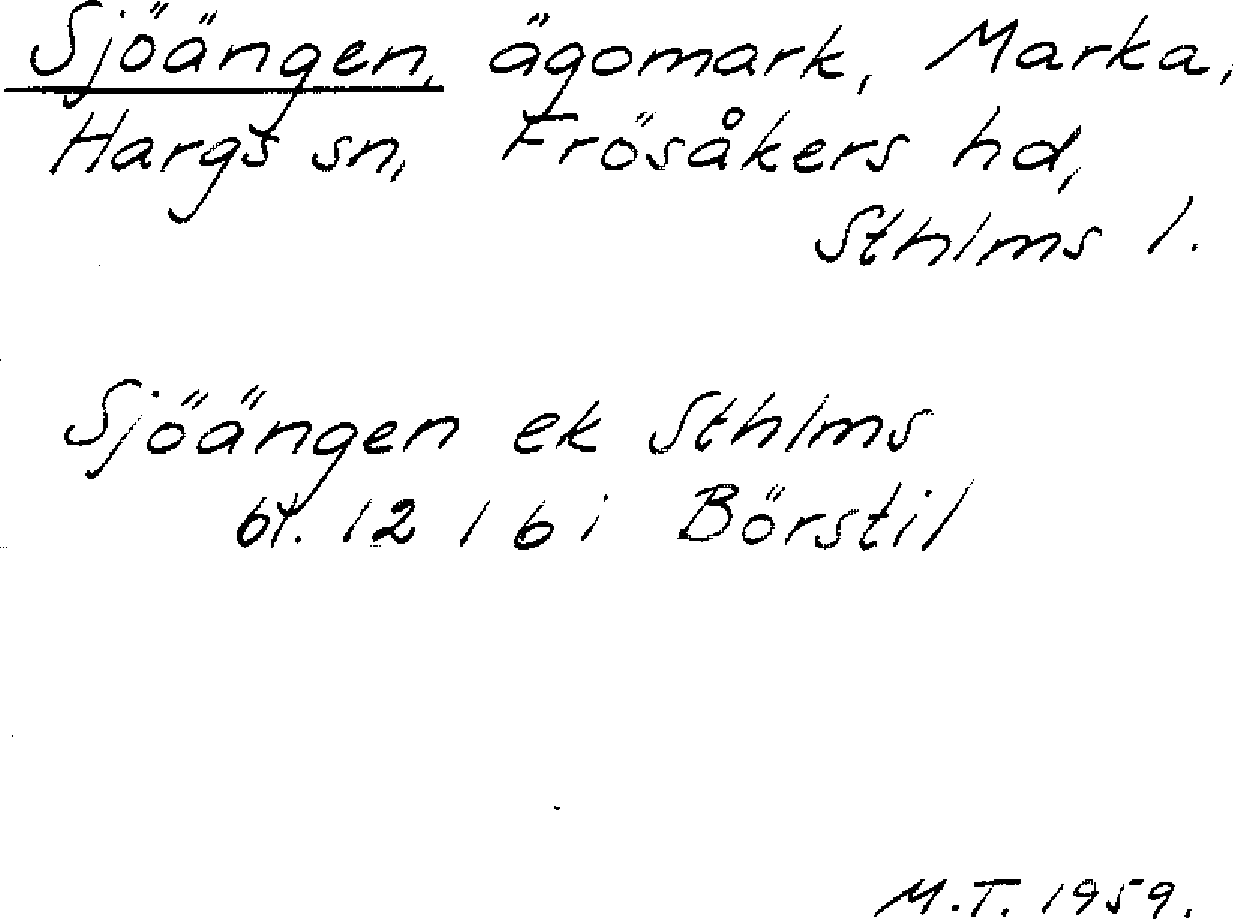 Sjöängen, ägomark, Marka,
Hargs sn, Frösåkers hd,
Sthlms l.
Sjöängen ek Sthlms
bl. 12 I 6 i Börstil
M.T. 1959.